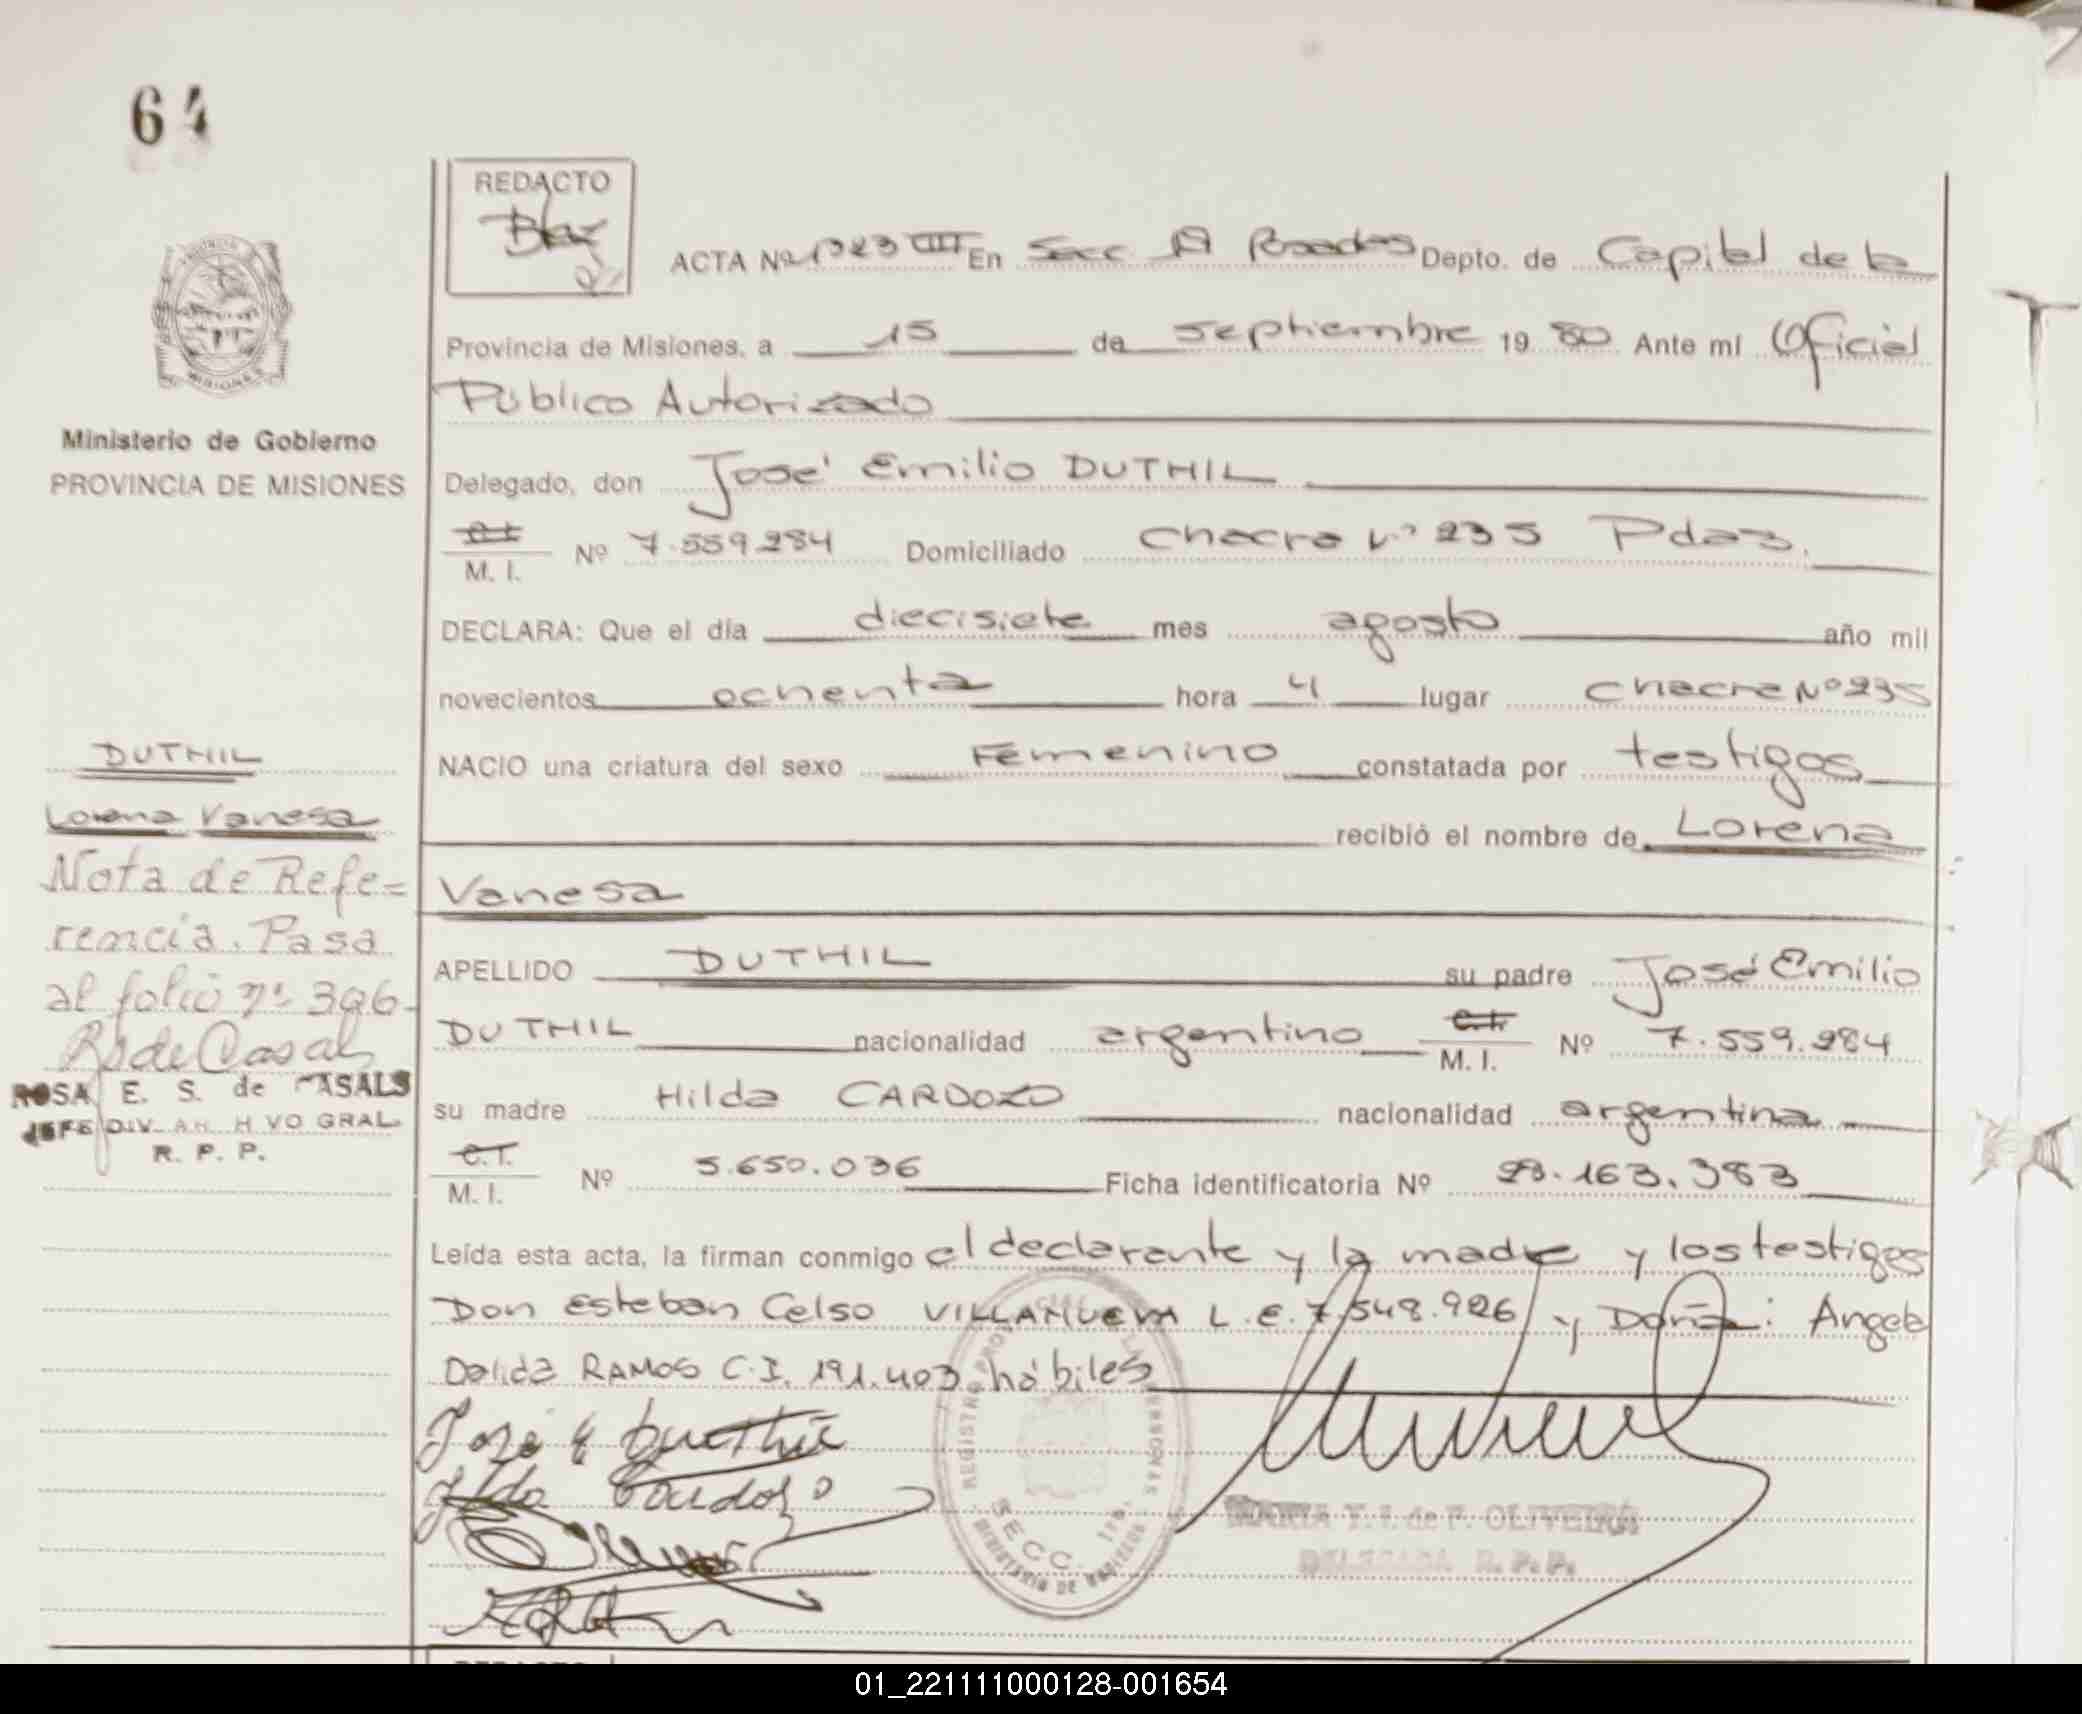 64
REDACTO
ACTA Nº 1323 En Secc Posadas Depto. de Capital de la
Provincia de Misiones, a 15 de septiembre 1980 Ante mi Oficial
Público Autorizado
Ministerio de Gobierno
PROVINCIA DE MISIONES
Delegado, don José Emilio DUTHIL
C.I.
M. I. Nº 7.559.284 Domiciliado Chacra Nº 235 Pdas.
DECLARA: Que el día diecisiete mes agosto año mil
novecientos ochenta hora 4 lugar Chacra Nº 235
NACIO una criatura del sexo Femenino constatada por testigos
recibió el nombre de Lorena
Vanesa
APELLIDO DUTHIL su padre José Emilio
DUTHIL nacionalidad argentino C.I. M. I. Nº 7.559.284
su madre Hilda CARDOZO nacionalidad argentina
C.I.
M. I. Nº 5.650.036 Ficha identificatoria Nº 28.163.383
Leída esta acta, la firman conmigo el declarante y la madre y los testigos
Don Esteban Celso VILLANUEVA L.E. 7.548.926 y Doña: Angela
Dalida RAMOS C.I. 191.403 hábiles
DUTHIL
Lorena Vanesa
Nota de Refe=
rencia. Pasa
al folio nº 396-
RSdeCasals
ROSA E. S. de CASALS
JEFE DIV. ARCHIVO GRAL
R. P. P.
José E Duthil
Hilda Cardozo
REGISTRO PROVINCIAL DE LAS PERSONAS
SECC. 1ra.
MINISTERIO DE GOBIERNO
MARIA T. I. de F. OLIVEIRA
DELEGADA R. P. P.
01_221111000128-001654